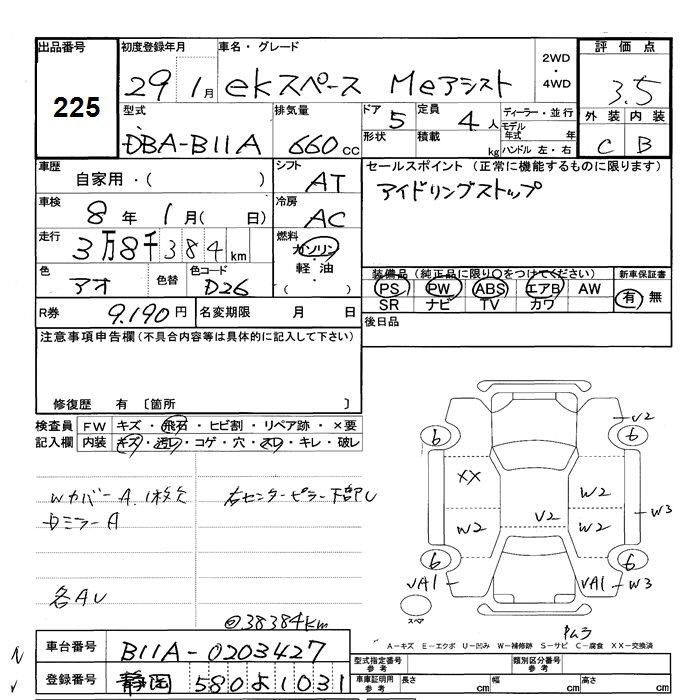 出品番号 初度登録年月 車名・グレード 2WD ・ 4WD 評価点
225 29 1月 ekスペース Meアシスト 3.5
型式 排気量 ドア 定員 ディーラー・並行 外装 内装
DBA-B11A 660 cc 5 4人 モデル年式 年 C B
形状 積載 kg ハンドル 左・右
車歴 自家用・( ) シフト AT セールスポイント (正常に機能するものに限ります)
車検 8年 1月( 日) 冷房 AC アイドリングストップ
走行 3万8千384km 燃料 ガソリン・軽油・( )
色 アオ 色替 色コード D26 装備品 (純正品に限り○をつけてください) 新車保証書
PS PW ABS エアB AW 有 無
SR ナビ TV カワ
R券 9.190円 名変期限 月 日 後日品
注意事項申告欄 (不具合内容等は具体的に記入して下さい)
修復歴 有 〔箇所 〕
検査員 FW キズ・飛石・ヒビ割・リペア跡・×要
記入欄 内装 キズ・汚レ・コゲ・穴・スレ・キレ・破レ
Wカバー A. 1枚欠 右センターピラー下部U
DミラーA
各AU
@38384km
V2
6 6
XX W2 W3
W2 V2 W2
6 6
VA1 VA1 W3
スペア
A-キズ E-エクボ U-凹み W-補修跡 S-サビ C-腐食 XX-交換済
車台番号 B11A-0203427 型式指定番号 参考 類別区分番号 参考
登録番号 静岡 580よ1031 車庫証明用 参考 長さ cm 幅 cm 高さ cm